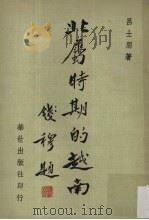 呂士朋著
北屬時期的越南
錢穆題
華世出版社印行